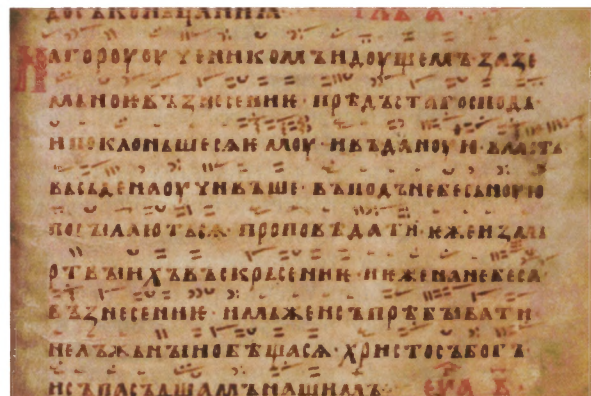 ДОСЪКОНЬЦАНИꙖ
НАГОРОУОУЧЕНИКОМЪИДОУЩЕМЪ·ЗАЗЕ
МЬНОѤВЪЗНЕСЕНИѤ·ПРѢДЪСТАГОСПОДЬ·
ИПОКЛОНЬШЕСѦѤМОУ·ИВЪДАНОУЮ·ВЛАСТЬ
ВЬСЬДЕНАОУЧИВЪШЕ·ВЪПОДЪНЕБЕСЬНОУЮ
ПОСЪІЛАЮТЬСѦ·ПРОПОВѢДАТИ·ИЖЕИЗМЬ
РТВЪІИХЪВЪСКРЬСЕНИѤ·ИИЖЕНАНЕБЕСА
ВЪЗНЕСЕНИѤ·
НЕЛЪЖЬНЪІИОБѢЩАСѦ·ХРИСТОСЪБОГЪ·
ИСЪПАСЪДШАМЪНАШИМЪ·